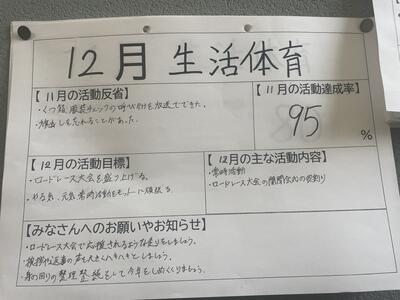 12月 生活体育
【11月の活動反省】
・くつ箱、服装チェックの呼びかけを放送でできた。
・旗出しを忘れることがあった。
【11月の活動達成率】
95
%
【12月の活動目標】
・ロードレース大会を盛り上げる。
・やる気、元気、常時活動をセットに頑張る
【12月の主な活動内容】
・常時活動
・ロードレース大会の開閉会式の役割り
【みなさんへのお願いやお知らせ】
・ロードレース大会で応援されるような走りをしましょう。
・挨拶や返事の声を大きくハキハキとしましょう。
・身の回りの整理整とんをして今年をしめくくりましょう。